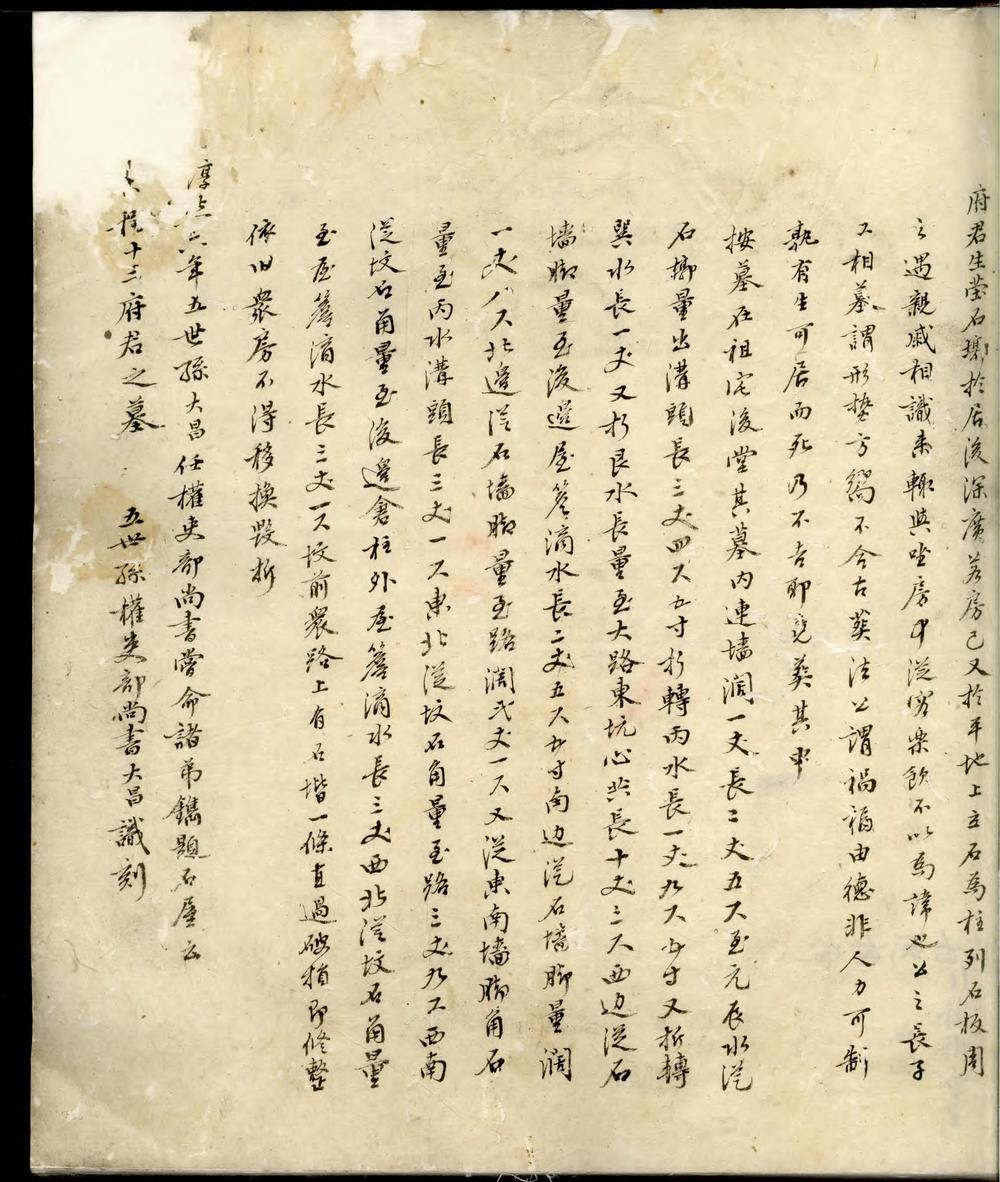 府君生塋石壙於居後深廣若房已又於平地上立石為柱列石板周
之遇親戚相識來輒與坐房中從容樂飲不以為諱也公之長子
又相墓謂形勢方 不合古葬法公謂禍福由德非人力可制
孰有生可居而死乃不吉耶竟葬其中
按墓在祖宅後堂其墓內連墻濶一丈長二丈五尺至元辰水從
石 量出溝頭長三丈四尺五寸折轉丙水長一丈九尺五寸又折轉
巽水長一丈又折艮水長量至大路東坑心共長十丈三尺西边從石
墻脚量至後邊屋簷滴水長二丈五尺五寸南边從石墻脚量濶
一丈八尺北邊從石墻脚量至路濶弍丈一尺又從東南墻脚角石
量至丙水溝頭長三丈一尺東北從坟石角量至路三丈九尺西南
從坟石角量至後邊倉柱外屋簷滴水長三丈西北從坟石角量
至屋簷滴水長三丈一尺坟前衆路上有石堦一條直過破損即修整
依旧衆房不得移換毀折
淳 六年五世孫大昌任權吏部尚書嘗命諸弟鐫題石屋云
程十三府君之墓 五世孫權吏部尚書大昌識刻